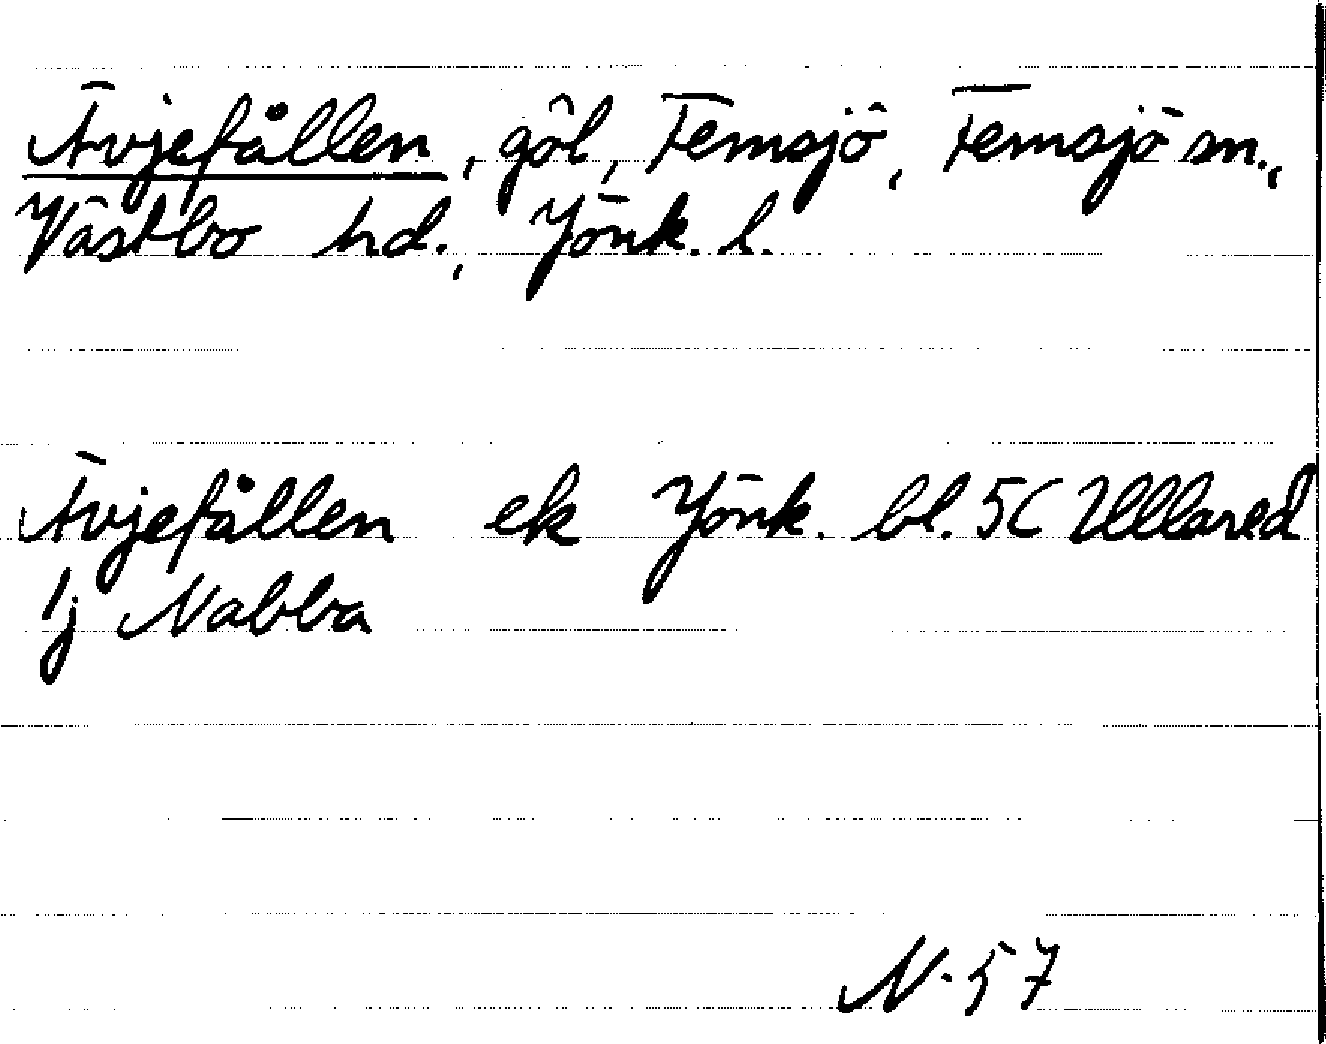 Ävjefållen, göl, Femsjö, Femsjö sn.,
Västbo hd., Jönk. l.
Ävjefållen ek Jönk. bl. 5C Ullared
1j Nabba
N-57